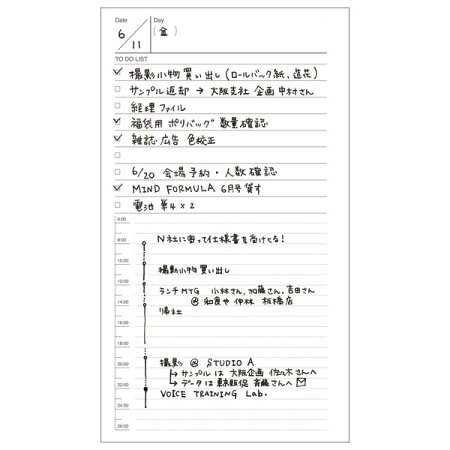 Date
Day
6/11
(金)
TO DO LIST
撮影小物買い出し(ロールバック紙、造花)
サンプル返却 → 大阪支社 企画 中村さん
経理ファイル
福袋用 ポリバッグ 数量確認
雑誌広告 色校正
6/20 会場予約・人数確認
MIND FORMULA 6月号 貸す
電池 単4×2
6:00
8:00
N社に寄って仕様書を受けとる!
10:00
撮影小物買い出し
12:00
ランチMTG 小林さん、加藤さん、吉田さん
@ 和食や 伸林 板橋店
14:00
帰社
16:00
18:00
20:00
撮影 @ STUDIO A
→ サンプルは 大阪企画 佐々木さんへ
22:00
→ データは 東京販促 斉藤さんへ
VOICE TRAINING Lab.
24:00
26:00